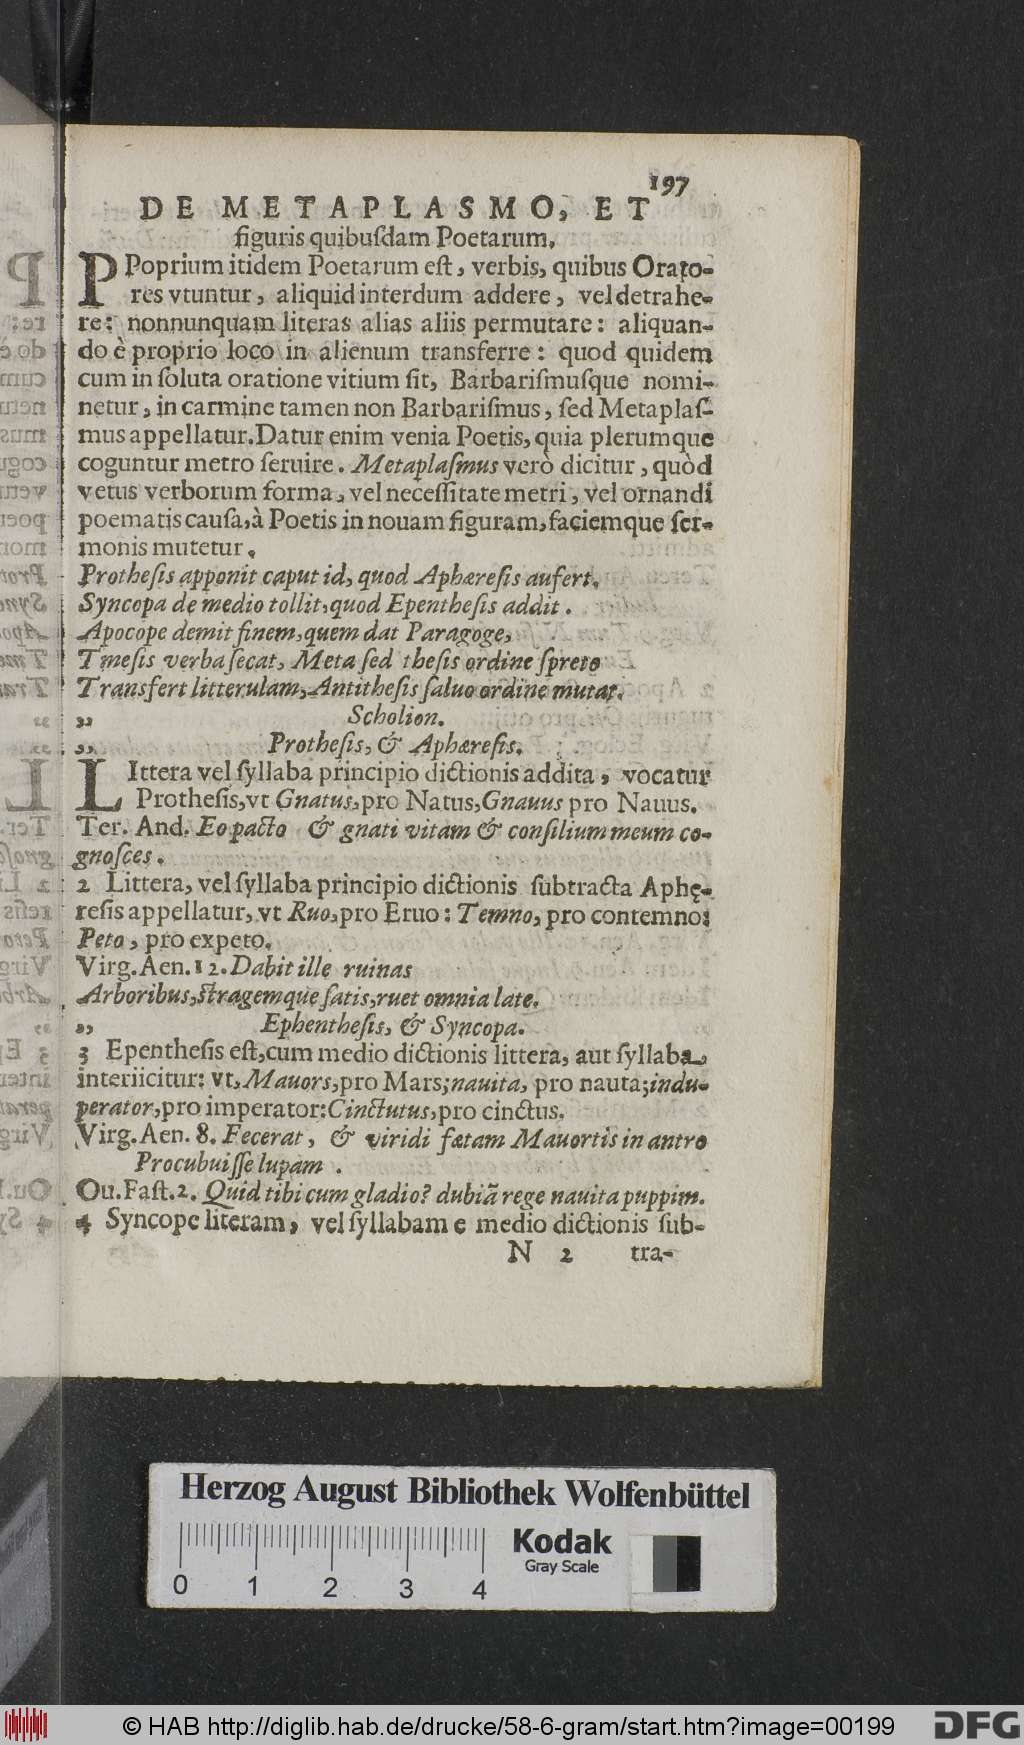 197
DE METAPLASMO, ET
figuris quibuſdam Poetarum.
PPoprium itidem Poetarum eſt, verbis, quibus Orato-
res vtuntur, aliquid interdum addere, vel detrahe-
re: nonnunquam literas alias aliis permutare: aliquan-
do è proprio loco in alienum transferre: quod quidem
cum in ſoluta oratione vitium ſit, Barbariſmuſque nomi-
netur, in carmine tamen non Barbariſmus, ſed Metaplaſ-
mus appellatur. Datur enim venia Poetis, quia plerumque
coguntur metro ſeruire. Metaplaſmus verò dicitur, quòd
vetus verborum forma, vel neceſſitate metri, vel ornandi
poematis cauſa, à Poetis in nouam figuram, faciemque ſer-
monis mutetur.
Protheſis apponit caput id, quod Aphæreſis aufert.
Syncopa de medio tollit, quod Epentheſis addit.
Apocope demit finem, quem dat Paragoge,
Tmeſis verba ſecat, Meta ſed theſis ordine ſpreto
Transfert litterulam, Antitheſis ſaluo ordine mutat.
„ Scholion.
„ Protheſis, & Aphæreſis.
LIttera vel ſyllaba principio dictionis addita, vocatur
Protheſis, vt Gnatus, pro Natus, Gnauus pro Nauus.
Ter. And. Eo pacto & gnati vitam & conſilium meum co-
gnoſces.
2 Littera, vel ſyllaba principio dictionis ſubtracta Aphę-
reſis appellatur, vt Ruo, pro Eruo: Temno, pro contemno:
Peto, pro expeto.
Virg. Aen. 12. Dabit ille ruinas
Arboribus, ſtragemque ſatis, ruet omnia late.
„ Ephentheſis, & Syncopa.
3 Epentheſis eſt, cum medio dictionis littera, aut ſyllaba
interiicitur: vt, Mauors, pro Mars; nauita, pro nauta; indu-
perator, pro imperator: Cinctutus, pro cinctus.
Virg. Aen. 8. Fecerat, & viridi fœtam Mauortis in antro
Procubuiſſe lupam.
Ou. Faſt. 2. Quid tibi cum gladio? dubiã rege nauita puppim.
4 Syncope literam, vel ſyllabam e medio dictionis ſub-
N 2 tra-
Herzog August Bibliothek Wolfenbüttel
Kodak
Gray Scale
0 1 2 3 4
© HAB http://diglib.hab.de/drucke/58-6-gram/start.htm?image=00199
DFG